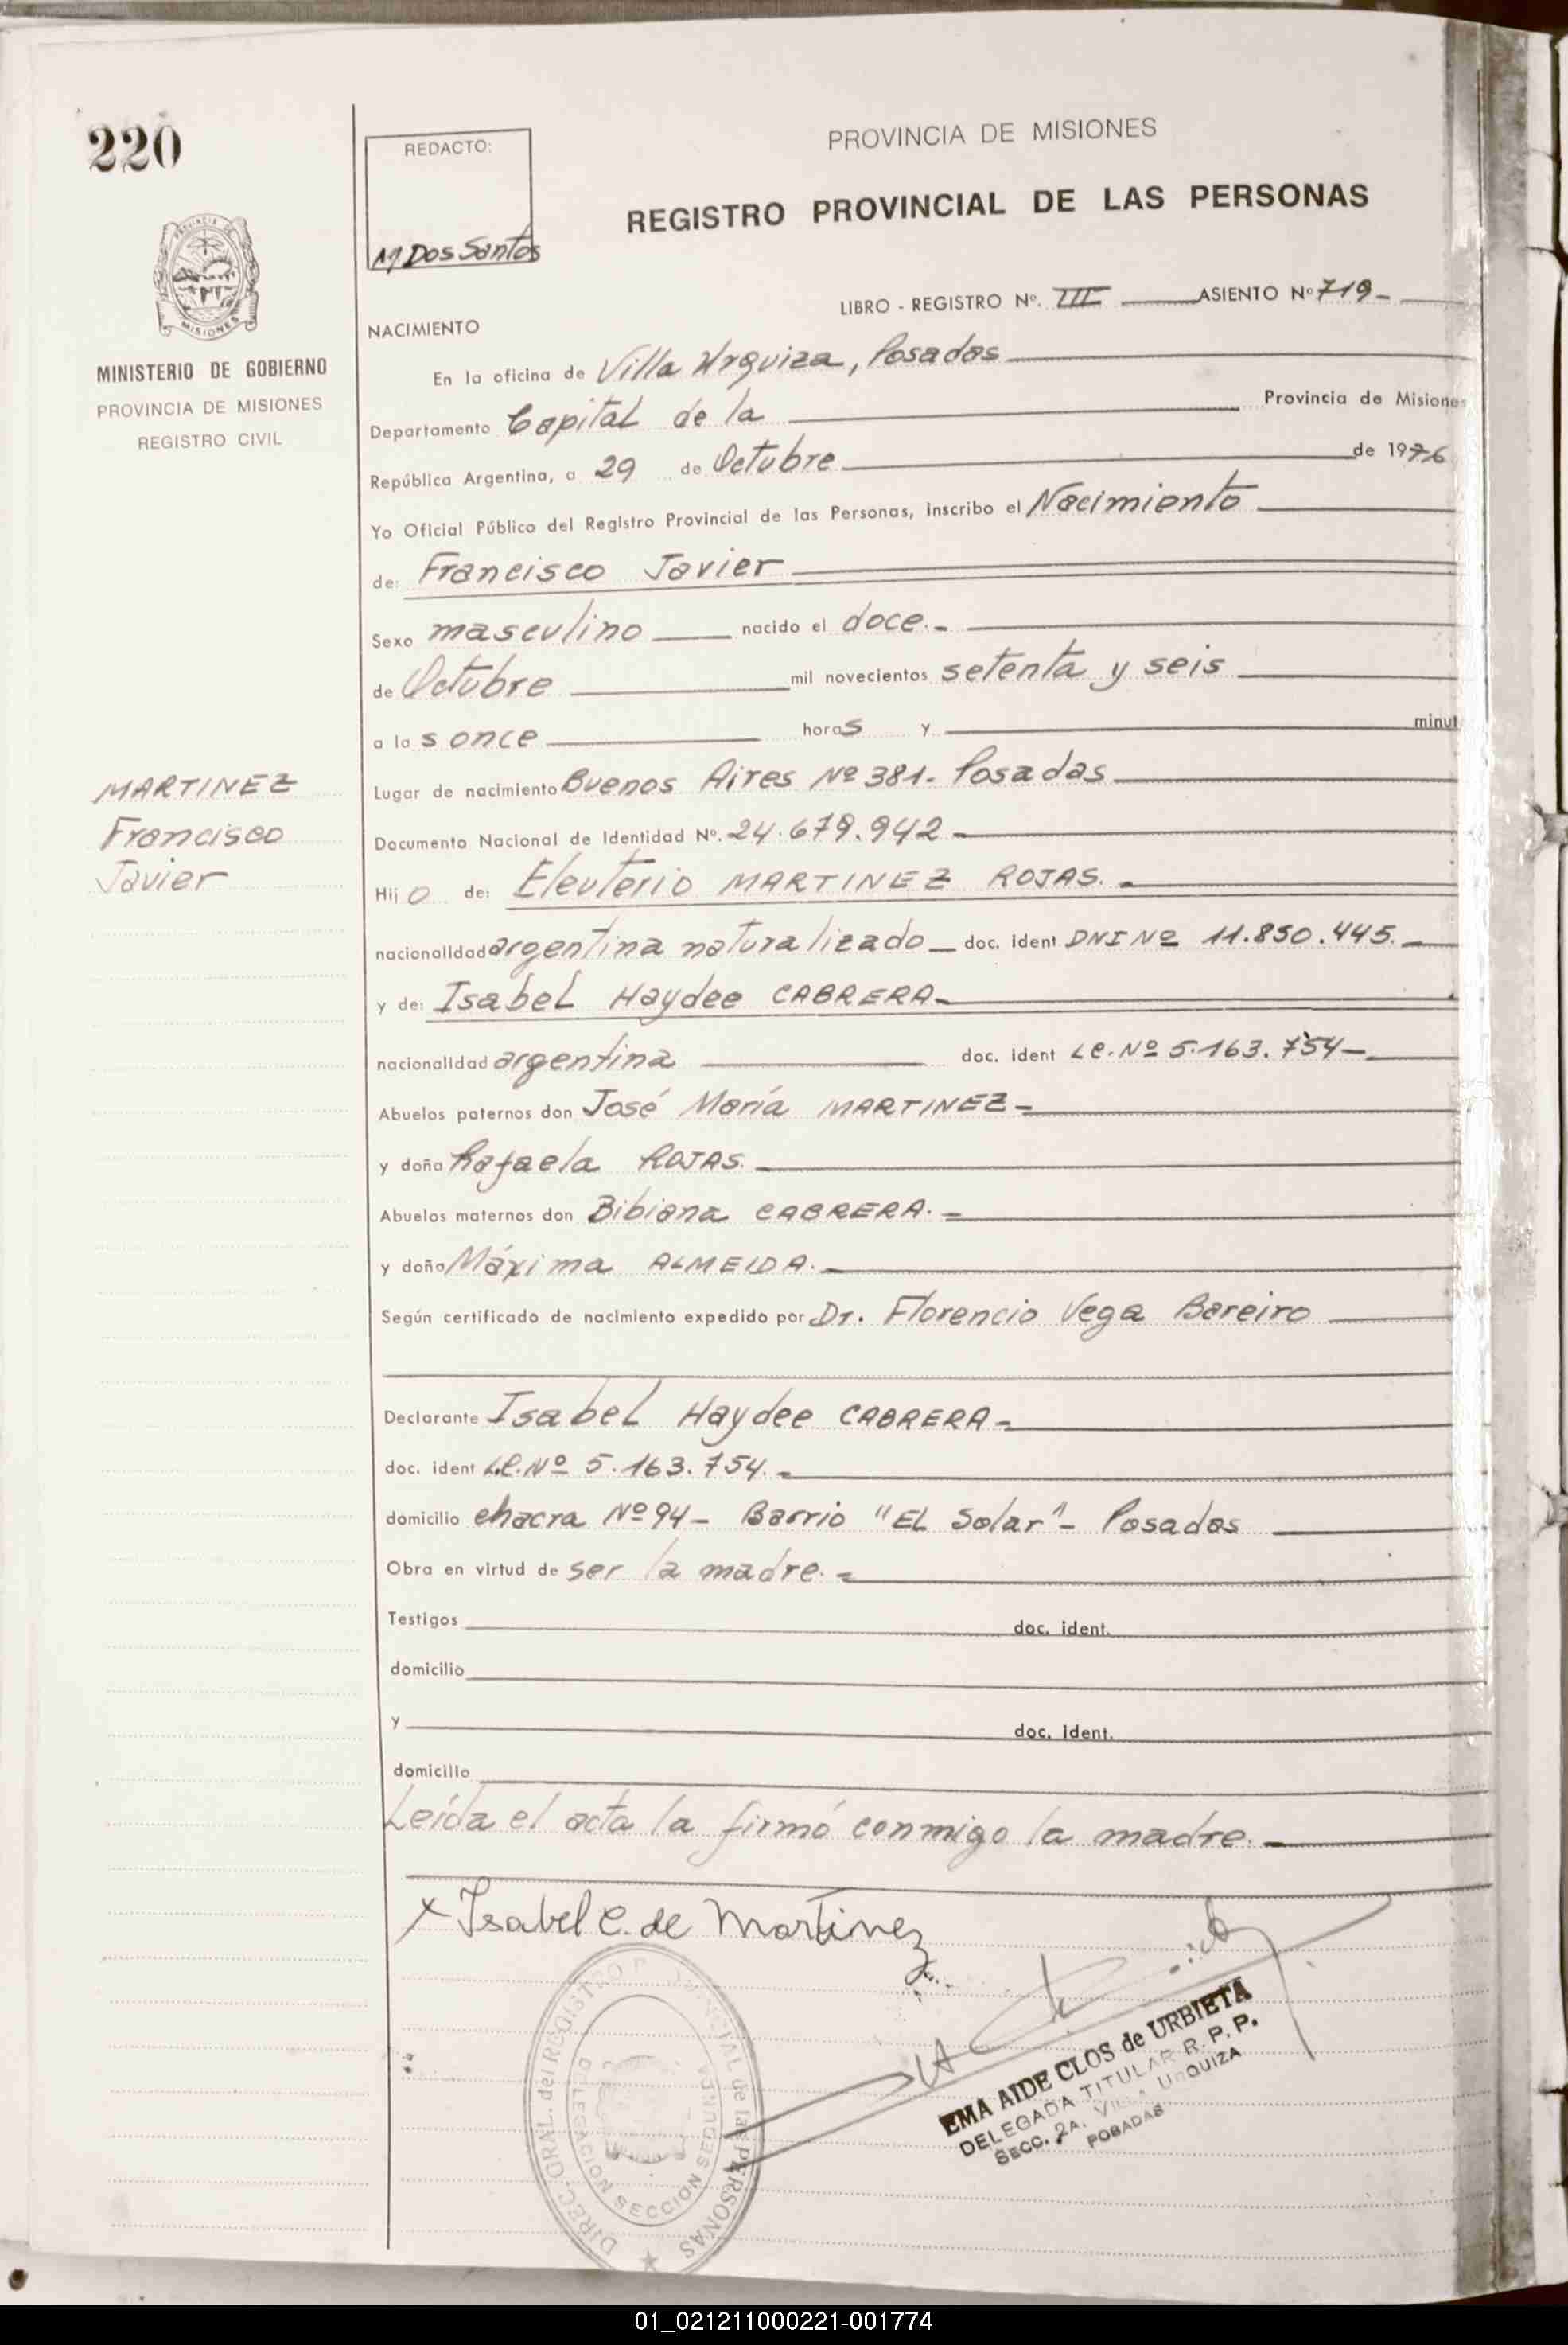 220
REDACTO:
M Dos Santos
PROVINCIA DE MISIONES
REGISTRO PROVINCIAL DE LAS PERSONAS
PROVINCIA
MISIONES
MINISTERIO DE GOBIERNO
PROVINCIA DE MISIONES
REGISTRO CIVIL
LIBRO - REGISTRO Nº. III ASIENTO Nº 719-
NACIMIENTO
En la oficina de Villa Urquiza, Posadas
Departamento Capital de la Provincia de Misiones
República Argentina, a 29 de Octubre de 1976
Yo Oficial Público del Registro Provincial de las Personas, inscribo el Nacimiento
de: Francisco Javier
Sexo masculino nacido el doce.-
de Octubre mil novecientos setenta y seis
a las once horas y minut
Lugar de nacimiento Buenos Aires Nº 381- Posadas
Documento Nacional de Identidad Nº. 24.679.942
MARTINEZ
Francisco
Javier
Hijo de: Eleuterio MARTINEZ ROJAS.-
nacionalidad argentina naturalizado doc. ident DNI Nº 11.850.445.-
y de: Isabel Haydee CABRERA-
nacionalidad argentina doc. ident L.C. Nº 5.163.754-
Abuelos paternos don José María MARTINEZ-
y doña Rafaela ROJAS.
Abuelos maternos don Bibiana CABRERA.-
y doña Máxima ALMEIDA.-
Según certificado de nacimiento expedido por Dr. Florencio Vega Bareiro
Declarante Isabel Haydee CABRERA-
doc. ident L.C. Nº 5.163.754.-
domicilio chacra Nº 94- Barrio "EL Solar"- Posadas
Obra en virtud de ser la madre.-
Testigos doc. ident.
domicilio
y doc. ident.
domicilio
Leída el acta la firmó conmigo la madre.-
x Isabel C. de Martinez
DIREC. GRAL. del REGISTRO PROVINCIAL de las PERSONAS
DELEGACION SECCION SEGUNDA
EMA AIDE CLOS de URBIETA
DELEGADA TITULAR R. P. P.
SECC. 2A. VILLA URQUIZA
POSADAS
01_021211000221-001774